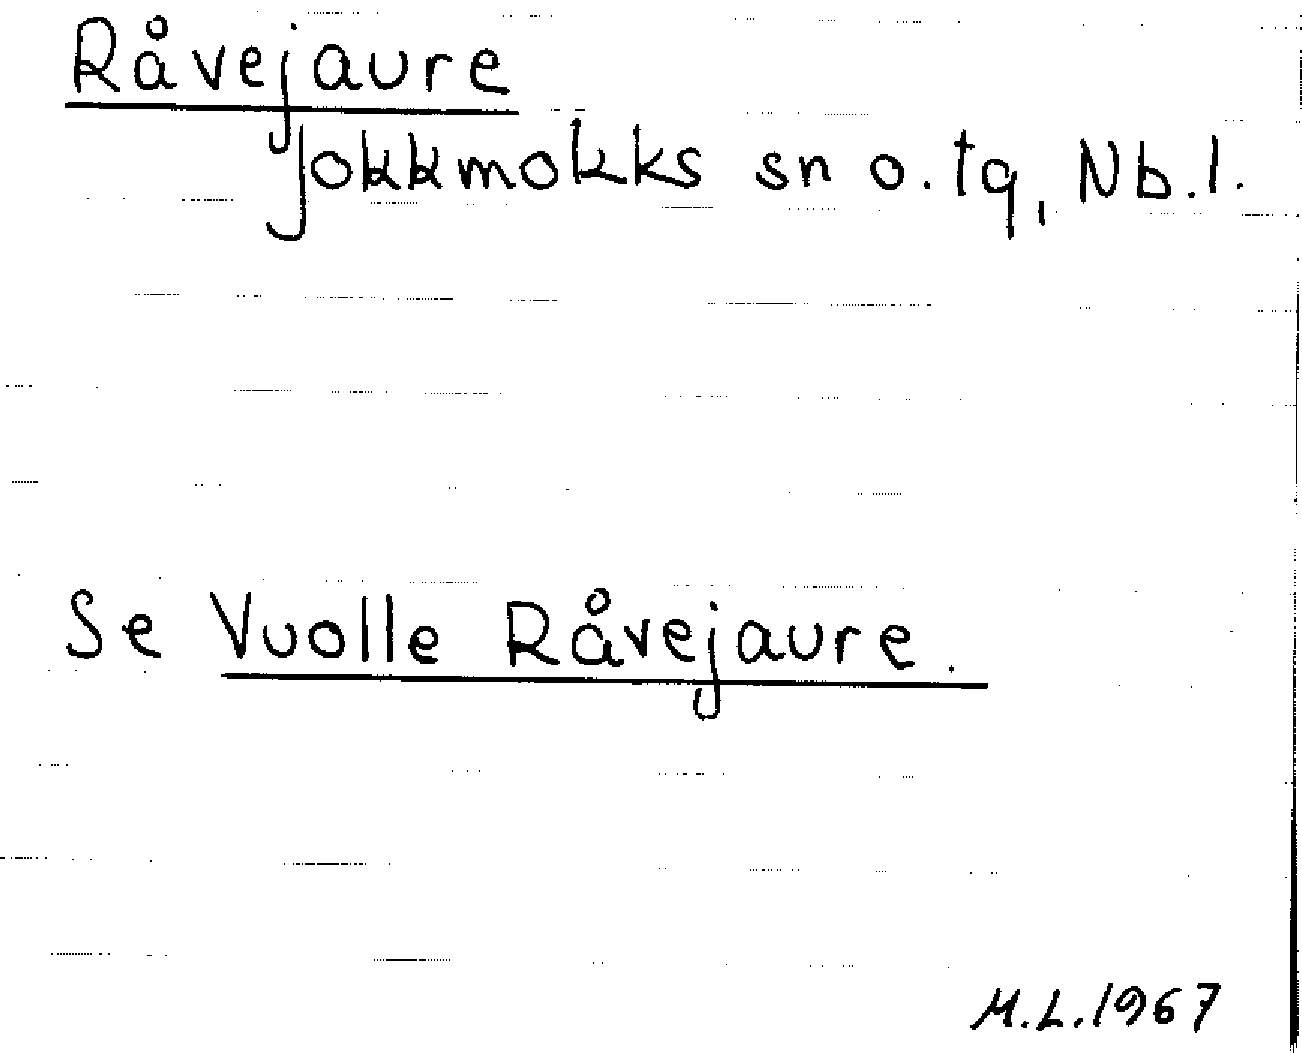 Råvejaure
Jokkmokks sn o. tg, Nb.l.
Se Vuolle Råvejaure.
M.L.1967